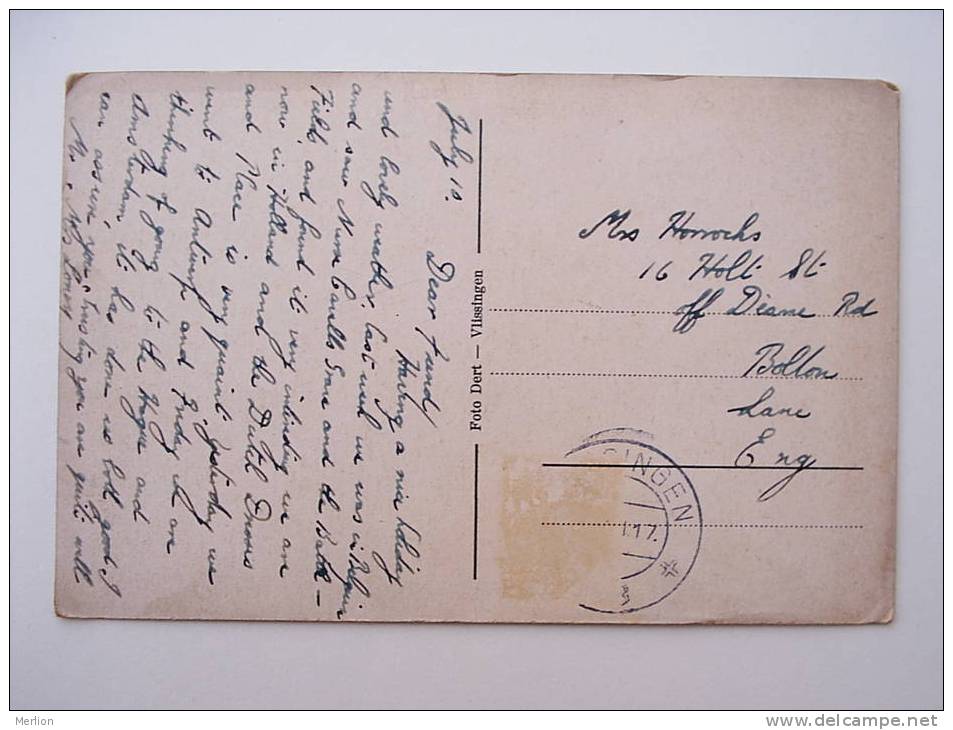 July 10.
Dear friends
Having a nice holiday
and lovely weather, last week we was in Belgium
and saw Nurse Cavells Grave and the Battle-
Fields, and found it very intresting we are
now in Holland and the Dutch Dresses
and Place is very quaint. yesterday we
went to Antwerp and Friday I am
thinking of going to the Hague and
Amsterdam, it has done us both good I
can assure you, trusting you are quite well
Mr & Mrs
Foto Dert — Vlissingen
Mrs Horrocks
16 Holt St
off Deane Rd
Bolton
Lanc
Eng
SINGEN
17.
Merlion
www.delcampe.net